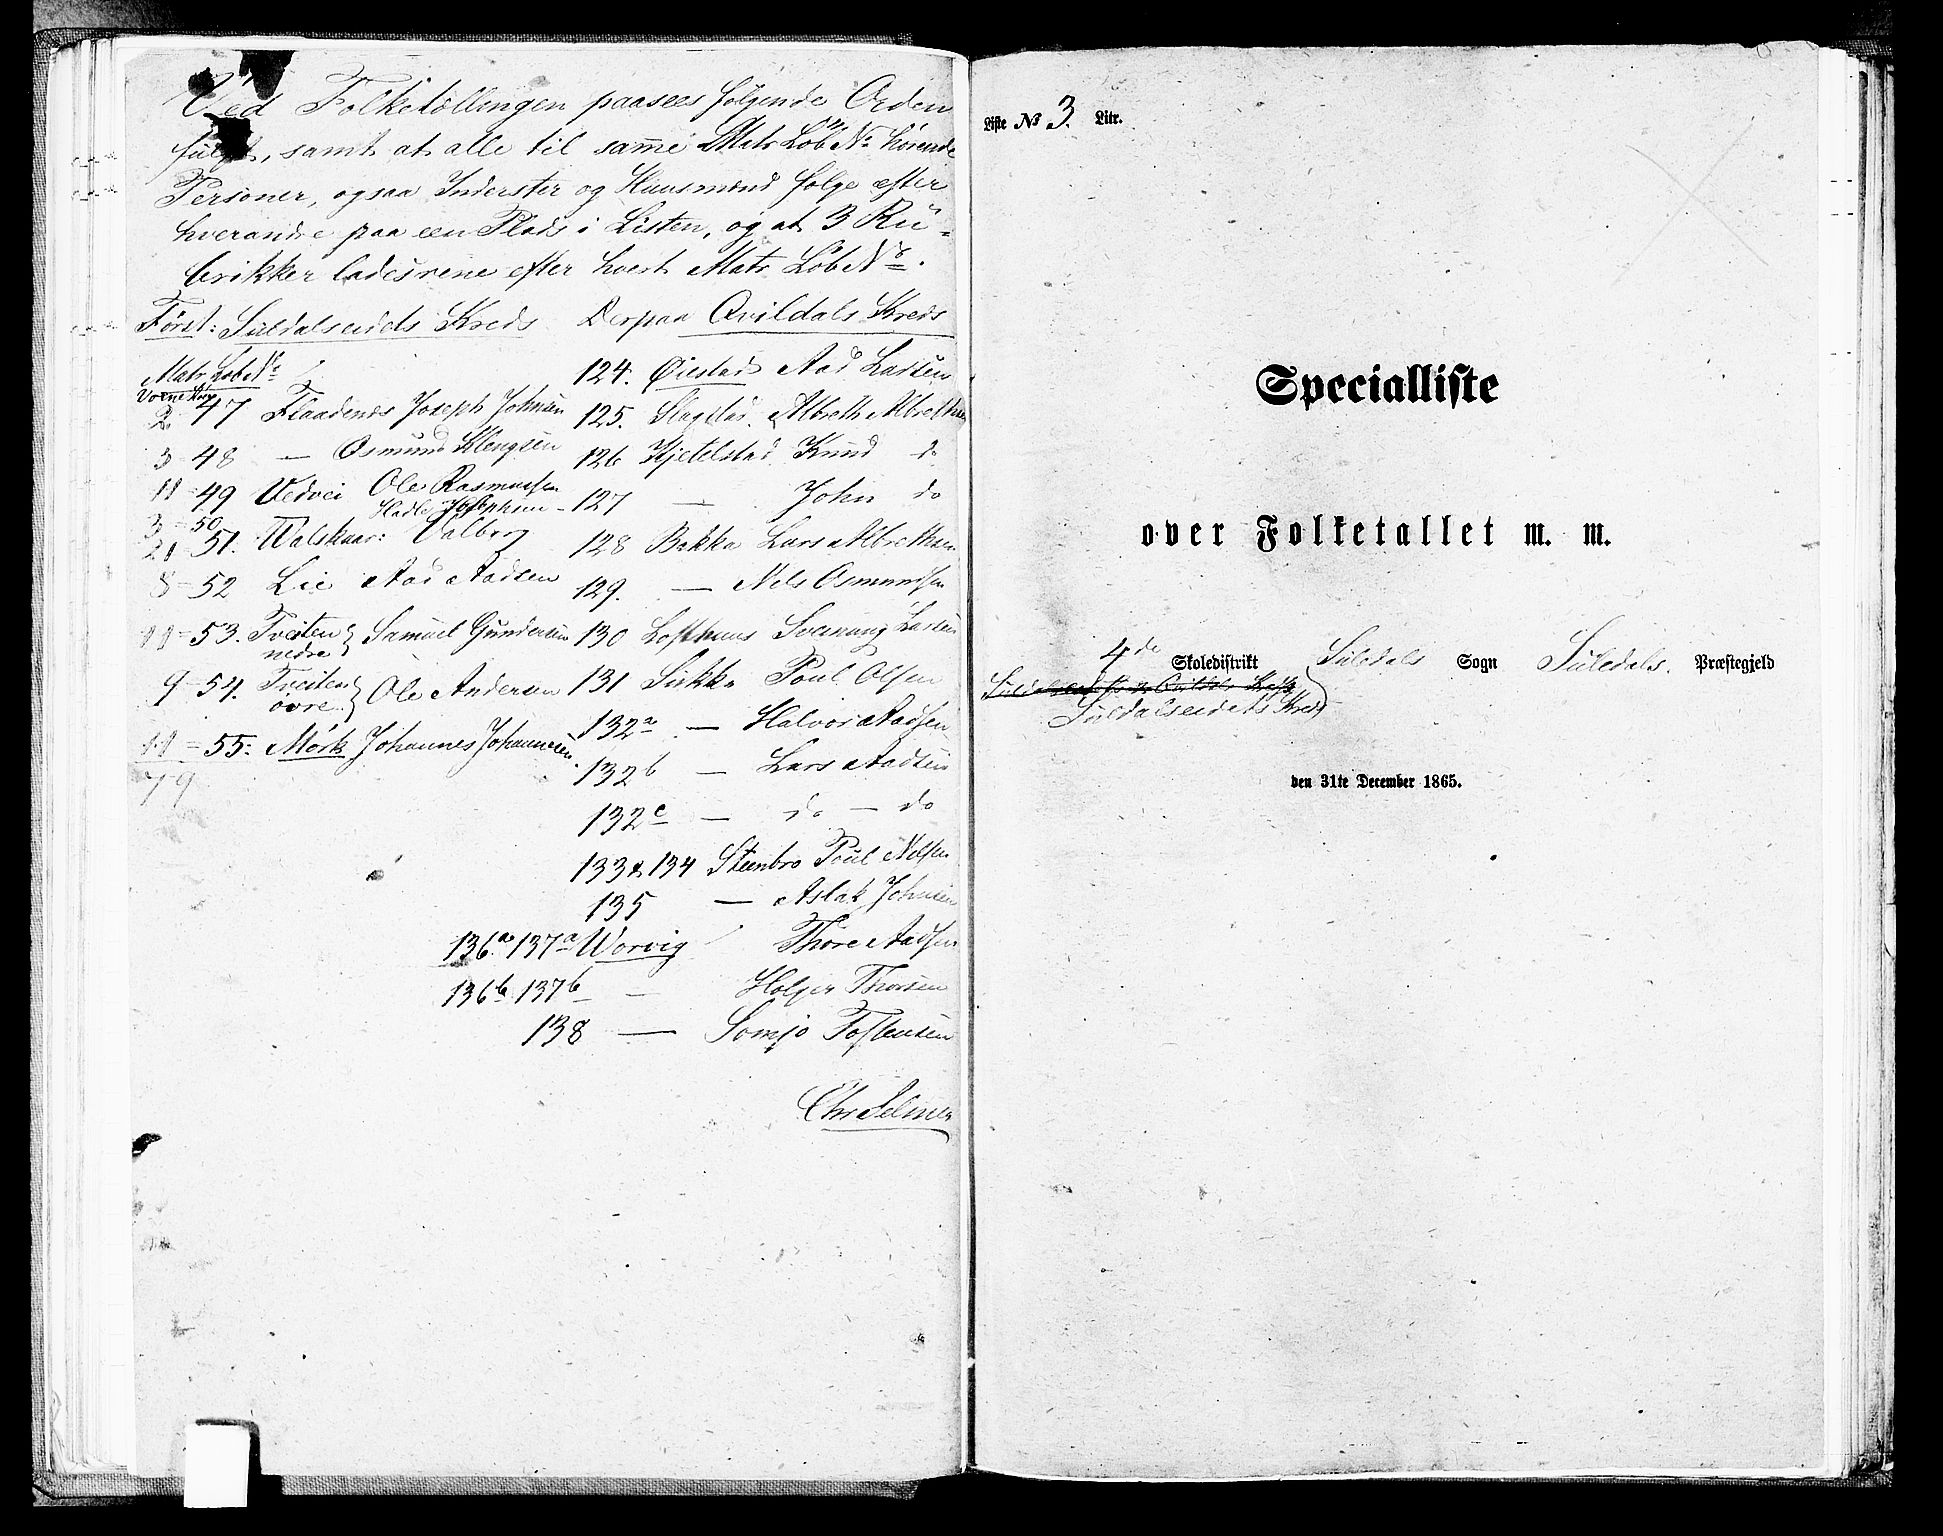 Ved Folketællingen paasees følgende Orden
fulgt, samt at alle til samme Matr Løb No hørende
Personer, ogsaa Inderster og Huusmænd følge efter
hverandre paa een Plads i Listen, og at 3 Ru-
brikker lades rene efter hvert Matr Løb No.
Først: Suldalseidets Kreds
Matr Løb No
2. 47 Flaadenes Joseph Johnsen
3 - 48 — Osmund Klengsen
11 - 49 Vedvei Ole Rasmussen
3 - 50 Hadle Josephsen
21 51. Walskaar: Valborg
8 - 52 Lie Aad Aadsen
11 - 53. Tveiten nedre } Samuel Gundersen
9 - 54. Tveiten övre } Ole Andersen
11 - 55: Mørk Johannes Johannesen.
79
Derpaa Qvildals Kreds
124. Øiestad Aad Larsen
125. Slagstad. Albreth Albrethsen
126 Kjetelstad Knud do
127 — John do
128 Bakka Lars Albrethsen
129. — Nels Osmundsen
130 Lofthuus Sveinung Larsen
131 Sukka Poul Olsen
132a — Halvor Aadsen
132b — Lars Aadsen
132c — do — do
133 & 134 Steenbro Poul Nelsen
135 — Aslak Johnsen
136a 137a Worvig Thore Aadsen
136b 137b — Holger Thorsen
138 — Tostensen
Chr Selmer
Liste No 3. Litr.
Specialliste
over Folketallet m. m.
4de Skoledistrikt Suledals Sogn Suledals. Præstegjeld
Suldalseidets og Qvildals Kreds
Suldalseidets Kreds
den 31te December 1865.